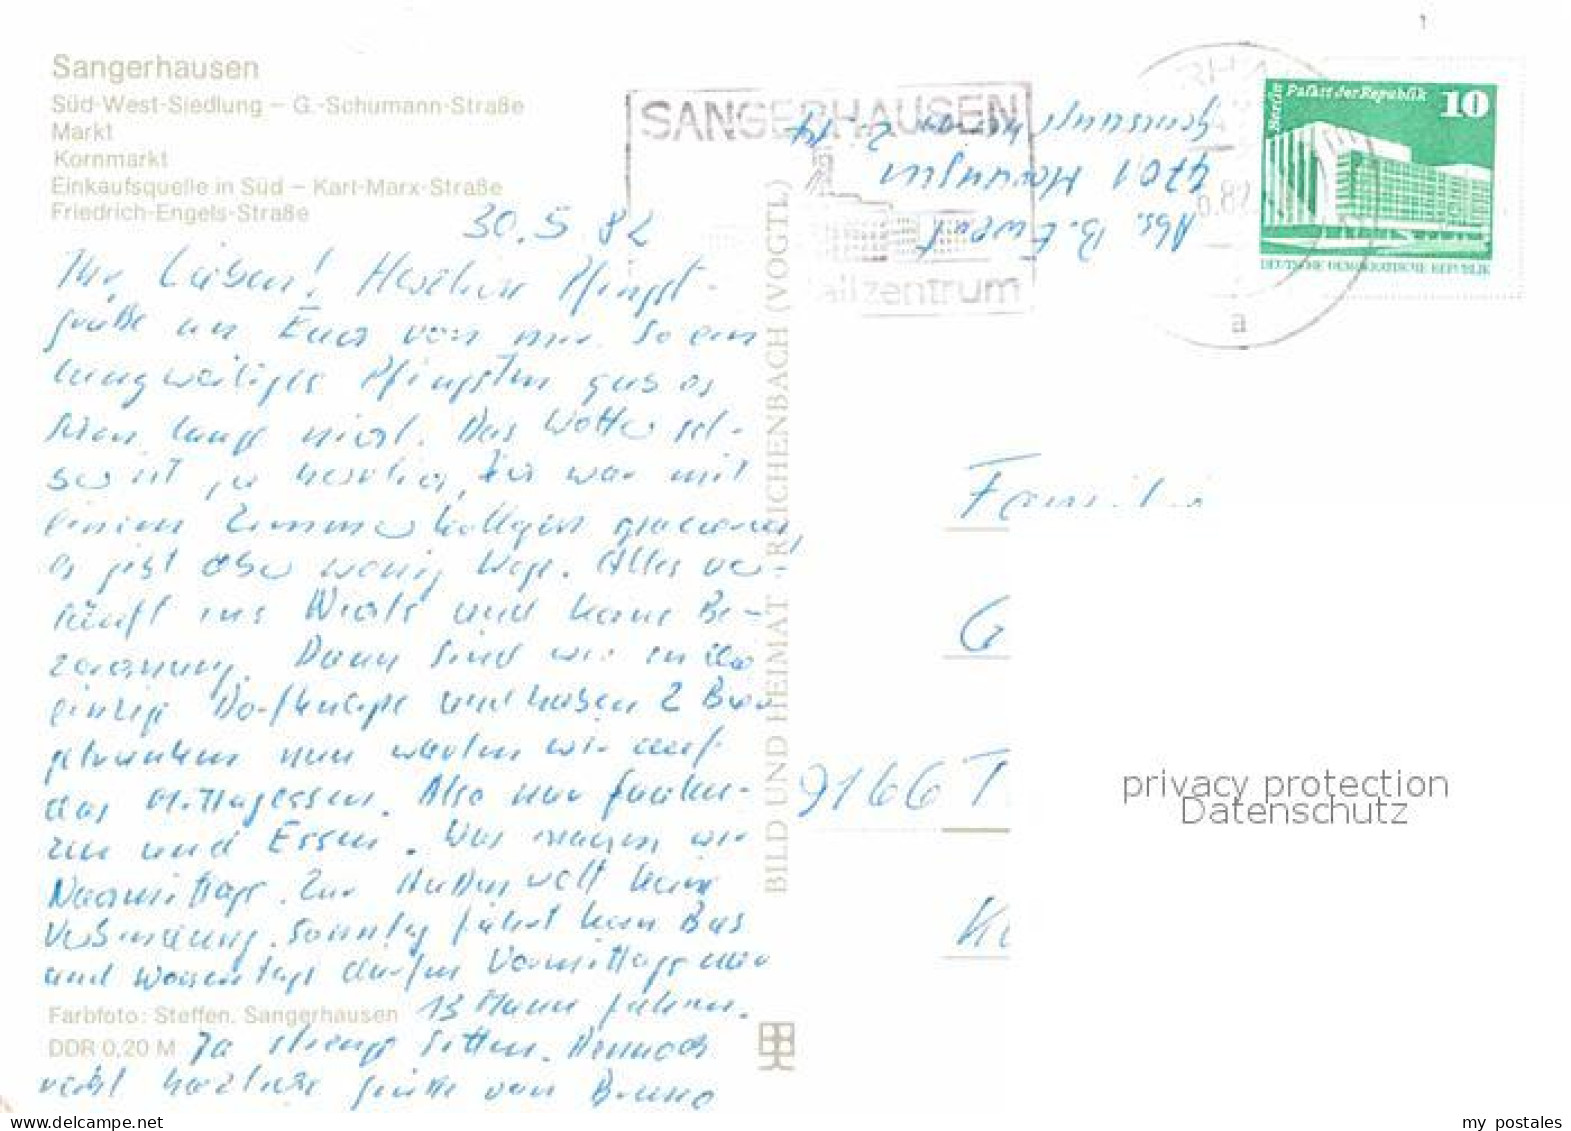 Sangerhausen
Süd-West-Siedlung – G.-Schumann-Straße
Markt
Kornmarkt
Einkaufsquelle in Süd – Karl-Marx-Straße
Friedrich-Engels-Straße
30.5 82
Ihr Lieben! Herzliche Pfingst-
grüße an Euch von mir. So ein
langweiliges Pfingsten gab es
schon lange nicht. Das Wetter sel-
ber ist ja herrlich, Ich war mit
einem Zimmerkollegen spazieren,
es gibt aber wenig Wege. Alles ver-
läuft ins Nichts und keine Be-
zeichnung. Dann sind wir in die
einzige Dorfkneipe und haben 2 Bier
getrunken nun warten wir auf
das Mittagessen. Also nur faulen-
zen und Essen. Was machen wir
Nachmittags. Zur Außenwelt keine
Verbindung. Sonntag fährt kein Bus
und Wochentags dürfen Vormittags nur
13 Mann fahren.
Ja strenge Sitten. Dennoch
recht herzliche Grüße von Bruno
Farbfoto: Steffen, Sangerhausen
DDR 0,20 M
BILD UND HEIMAT REICHENBACH (VOGTL)
SANGERHAUSEN
zentrum
Abs. B. Ewert
4701
10
Berlin Palast der Republik
DEUTSCHE DEMOKRATISCHE REPUBLIK
a
1
Familie
G
9166 T
K
privacy protection
Datenschutz
my postales